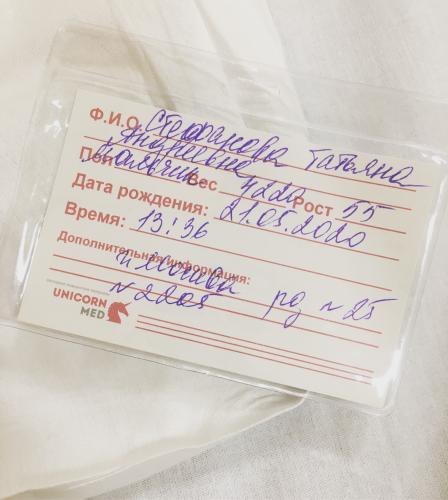 Ф.И.О. Стефанова Татьяна
Андреевна
Пол: мальчик Вес 4220 Рост 55
Дата рождения: 21.05.2020
Время: 13:36
Дополнительная информация:
г. Москва
N 2205 рд N 25
UNICORN
MED